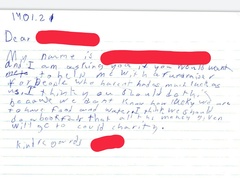 1401.21
Dear
My name is
and I am asking you if you would
to help me with a fundraiser
for people who havent had as much luck as
us. I think you should do this
because we dont know how lucky we are
to have food and water. I think we should
do a book fair that all the money given
will go to could charity.
Kind regards